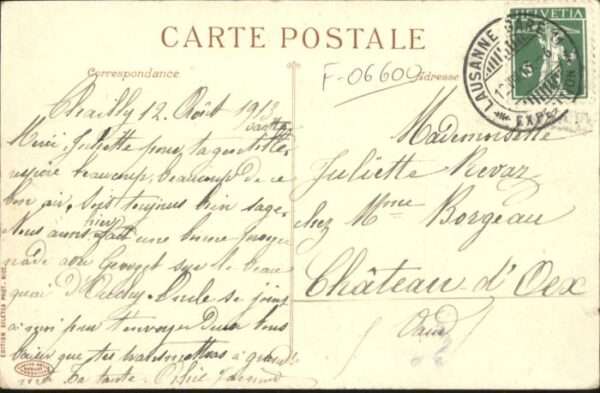 CARTE POSTALE
Correspondance
Adresse
F-06600
HELVETIA
5
LAUSANNE GARE
EXP.
Chailly 12 Août 1913
Merci, Juliette pour ta gentille
carte,
respire beaucoup, beaucoup de ce
bon air. Sois toujours bien sage.
Nous avons hier fait une bonne prome
nade avec Georges sur le beau
quai d'Ouchy. Oncle se joint
à moi pour t'envoyer deux bons
baisers que tu transmettras à
Ta tante
Mademoiselle
Juliette Revaz
chez Mme Borgeau
Château-d'Oex
Vaud
EDITION